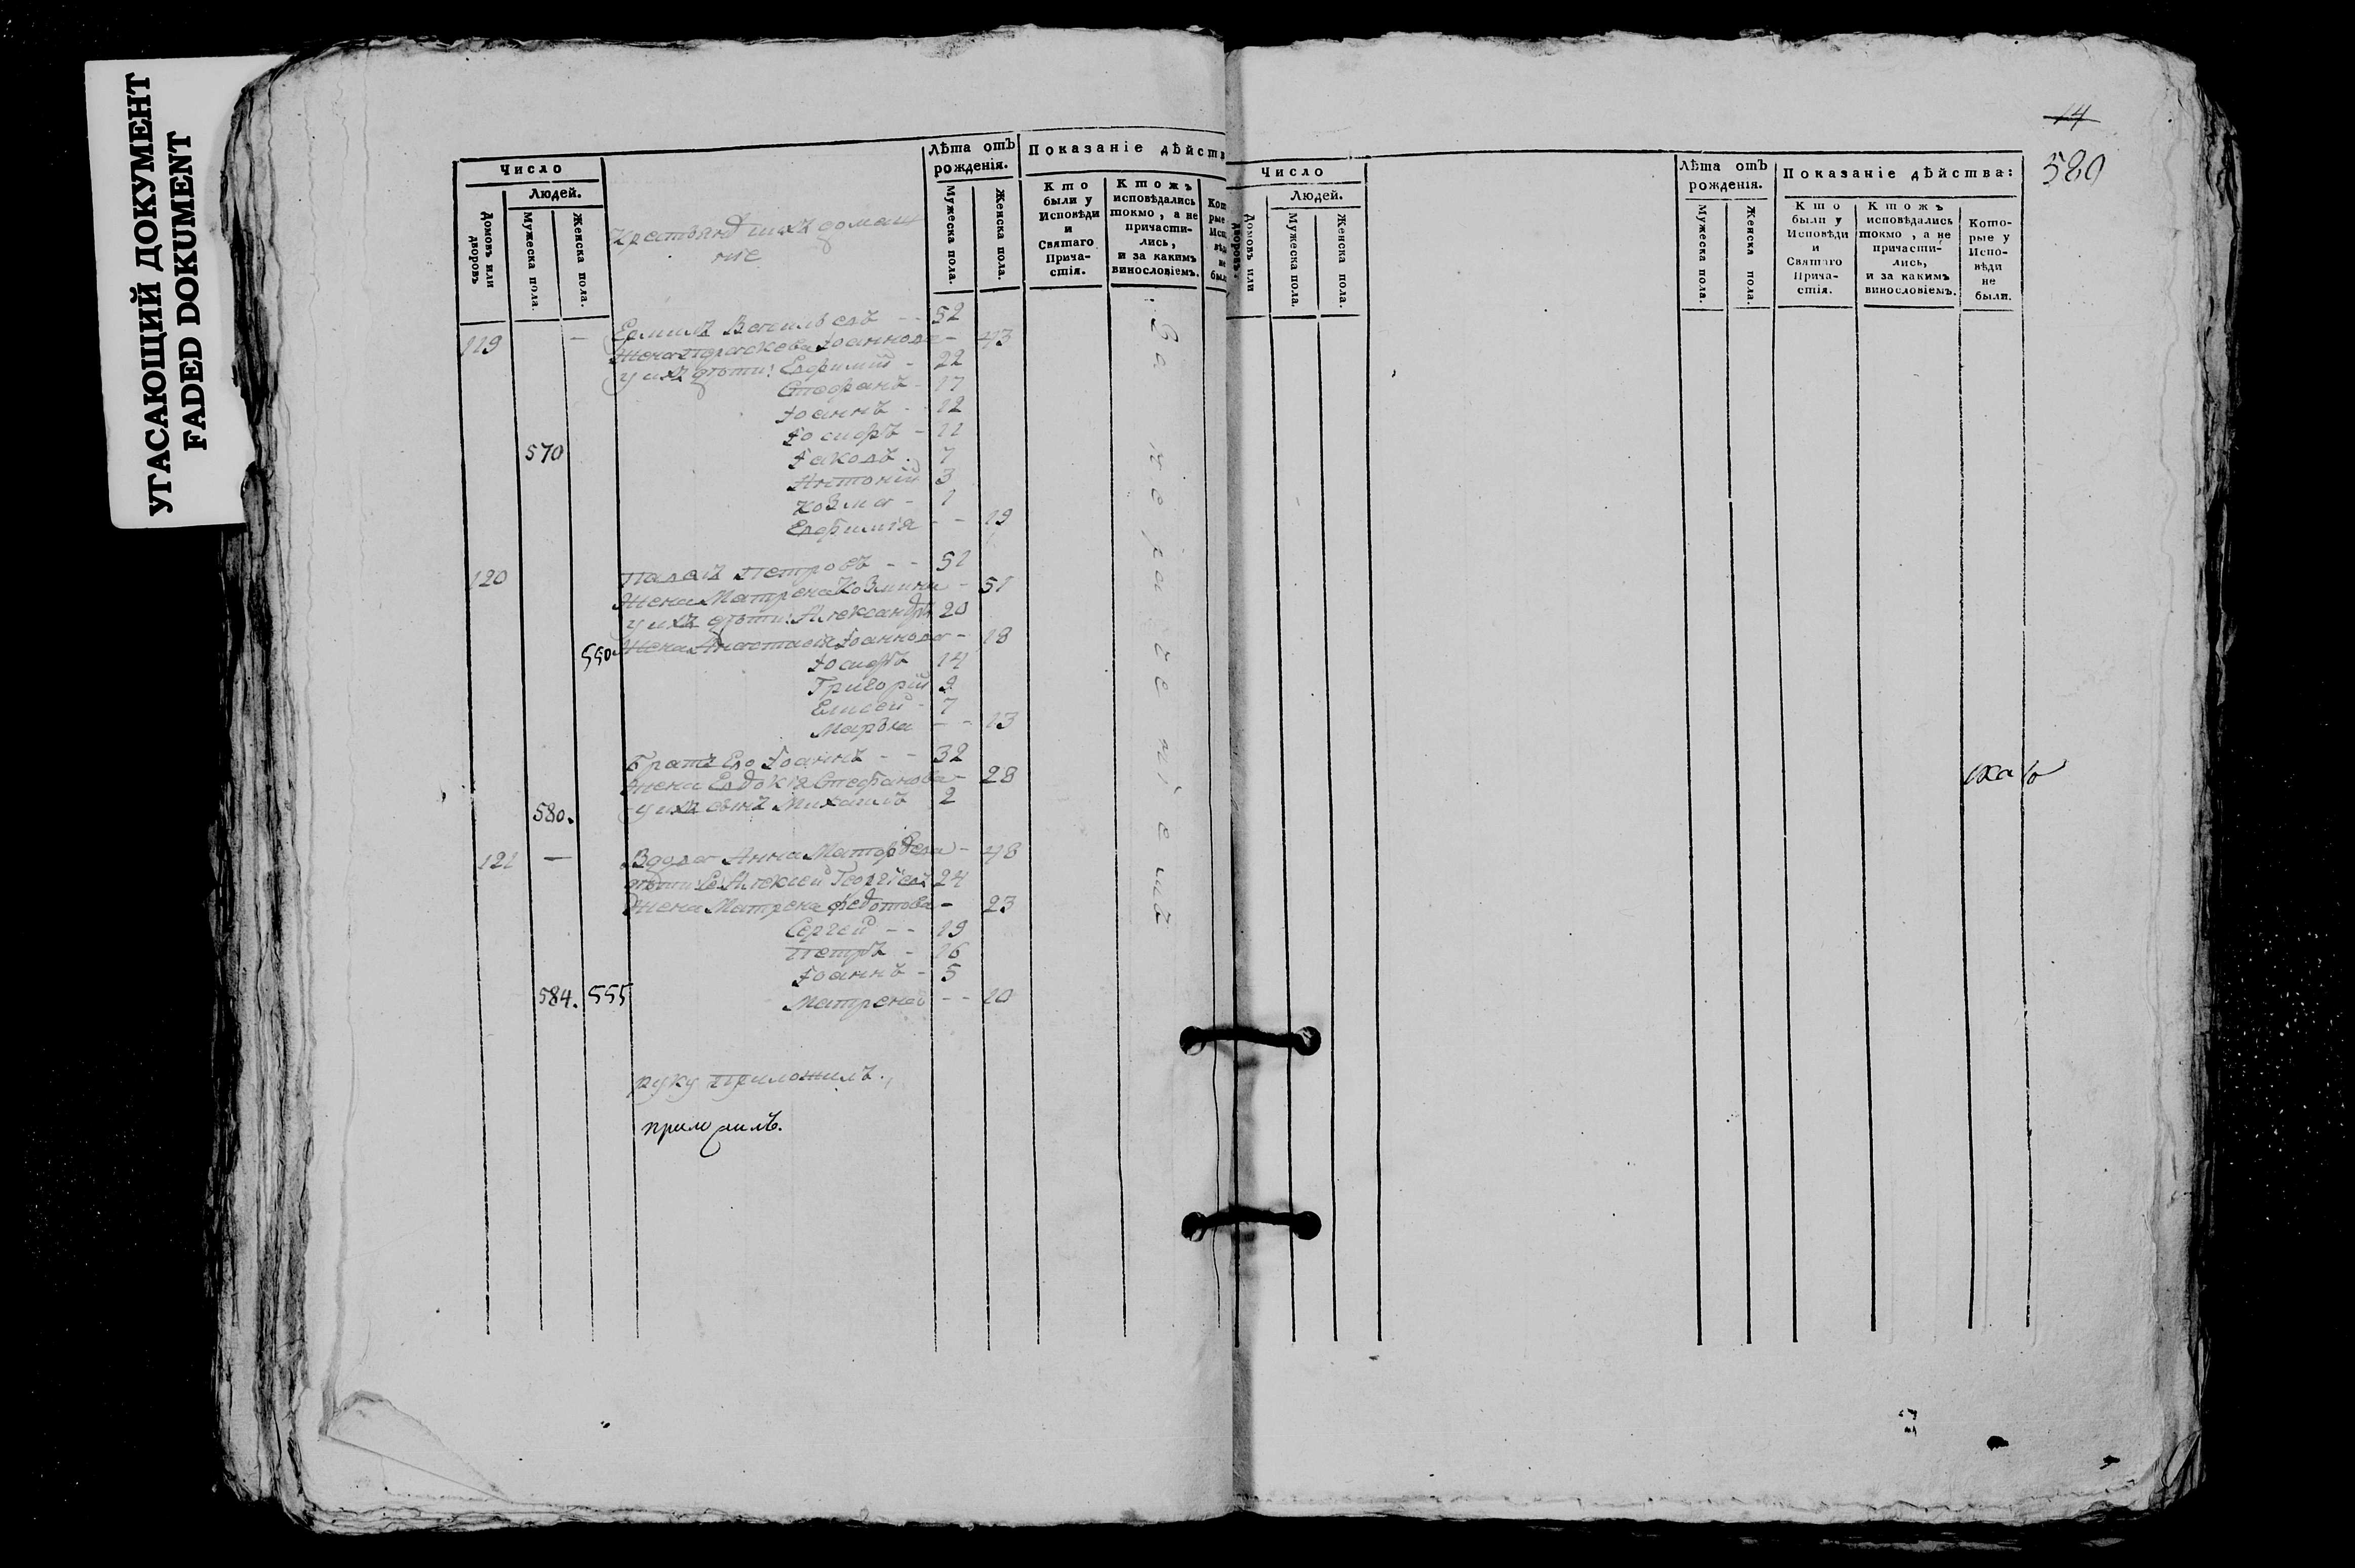 УГАСАЮЩИЙ ДОКУМЕНТ
FADED DOKUMENT
Число
Людей.
Домовъ или дворовъ
Мужеска пола.
Женска пола.
Лѣта отъ рожденія.
Мужеска пола.
Женска пола.
Показаніе дѣйств
Кто были у Исповѣди и Святаго Прича-стія.
Ктожъ исповѣдались токмо, а не причасти-лись, и за какимъ винословіемъ.
Крестьяне ихъ домаш
ніе
Василь евъ - - 52
119 - Жена Параскева Іоаннова - 43
у ихъ дѣти: Евфимій - 22
Стефанъ - 17
Іоаннъ - 12
Іосифъ - 11
570 Іаковъ . 7
Антоній 3
Козма - 1
Евфимія - - 19
120 Павелъ Петровъ - - 51
Жена Матрена Козмина - 51
у ихъ дѣти: Александръ 20
550 Жена Анастасія Іоаннова - 18
Іосифъ 14
Григорій 9
Елисей - 7
Марѳа - - 13
Братъ Его Іоаннъ - - 32
Жена Евдокія Стефанова - 28
580. у ихъ сынъ Михаилъ 2
121 - Вдова Анна Матфеева - 48
дѣти Ея Алексей Георгіевъ 24
Жена Матрена Федотова - 23
Сергей - - 19
Петръ - 16
Іоаннъ - 5
584. 555 Матрена - - 10
За нераченіемъ
руку приложилъ.
приложилъ.
14
580
Число
Людей.
Домовъ или дворовъ.
Мужеска пола.
Женска пола.
Лѣта отъ рожденія.
Мужеска пола.
Женска пола.
Показаніе дѣйства:
Кто были у Исповѣди и Святаго Прича-стія.
Ктожъ исповѣдались токмо, а не причасти-лись, и за какимъ винословіемъ.
Кото-рые у Испо-вѣди не были.